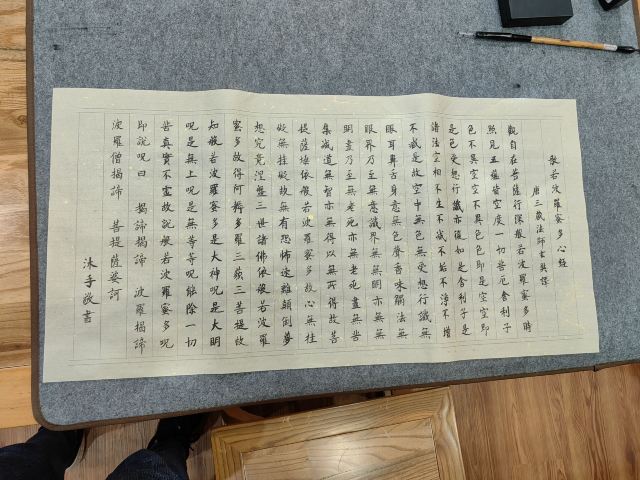 般若波羅蜜多心經
唐三藏法師玄奘譯
觀自在菩薩行深般若波羅蜜多時
照見五蘊皆空度一切苦厄舍利子
色不異空空不異色色即是空空即
是色受想行識亦復如是舍利子是
諸法空相不生不滅不垢不淨不增
不減是故空中無色無受想行識無
眼耳鼻舌身意無色聲香味觸法無
眼界乃至無意識界無無明亦無無
明盡乃至無老死亦無老死盡無苦
集滅道無智亦無得以無所得故菩
提薩埵依般若波羅蜜多故心無罣
礙無罣礙故無有恐怖遠離顛倒夢
想究竟涅盤三世諸佛依般若波羅
蜜多故得阿耨多羅三藐三菩提故
知般若波羅蜜多是大神呪是大明
呪是無上呪是無等等呪能除一切
苦真實不虛故說般若波羅蜜多呪
即說呪曰 揭諦揭諦 波羅揭諦
波羅僧揭諦 菩提薩婆訶
沐手敬書